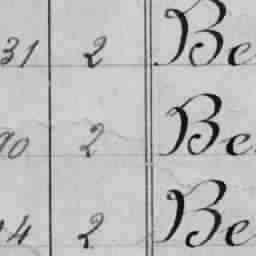 31 2 Be
90 2 Be
14 2 Be